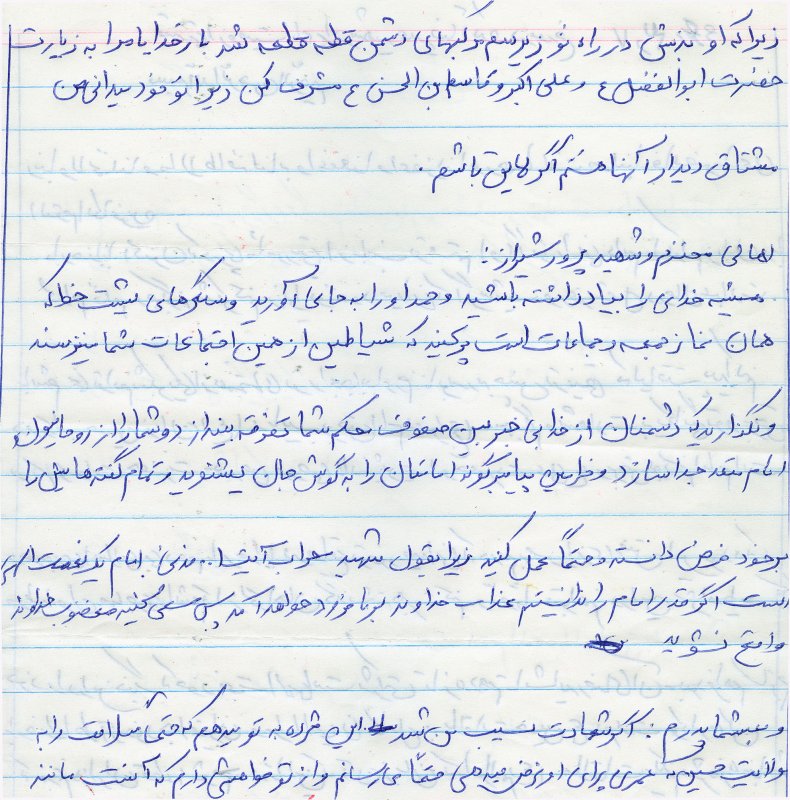 زیرا که او بدنش در راه تو زیر سم مرکبهای دشمن قطعه قطعه شد بار خدایا مرا به زیارت
حضرت ابوالفضل ع و علی اکبر و قاسم بن الحسن ع مشرف کن زیرا تو خود میدانی من
مشتاق دیدار آنها هستم اگر لایق باشم .
اهالی محترم و شهید پرور شیراز :
همیشه خدای را بیاد داشته باشید و حمد او را به جای آورید و سنگرهای پشت خط که
همان نماز جمعه و جماعات است پر کنید که شیاطین از همین اجتماعات شما میترسند
و نگذارید که دشمنان از خدا بی خبر بین صفوف محکم شما تفرقه بیندازد و شما را از روحانیون و
امام متعهد جدا سازد و فرامین پیامبرگونه امامتان را به گوش جان بشنوید و تمام گفته هایش را
بر خود فرض دانسته و حتماً عمل کنید زیرا بقول شهید محراب آیت ا.. مدنی امام یک نعمت الهی
است اگر قدر امام را ندانستیم عذاب خداوند بر ما فرود خواهد آمد پس سعی کنید مغضوب خداوند
واقع نشوید
و بشما پدرم : اگر شهادت نصیب من شد این مژده به تو میدهم که حتماً سلامت را به
مولایت حسین که عمری برای او نوحه میدهی حتماً می رسانم و از تو خواهشی دارم که آنست مانند